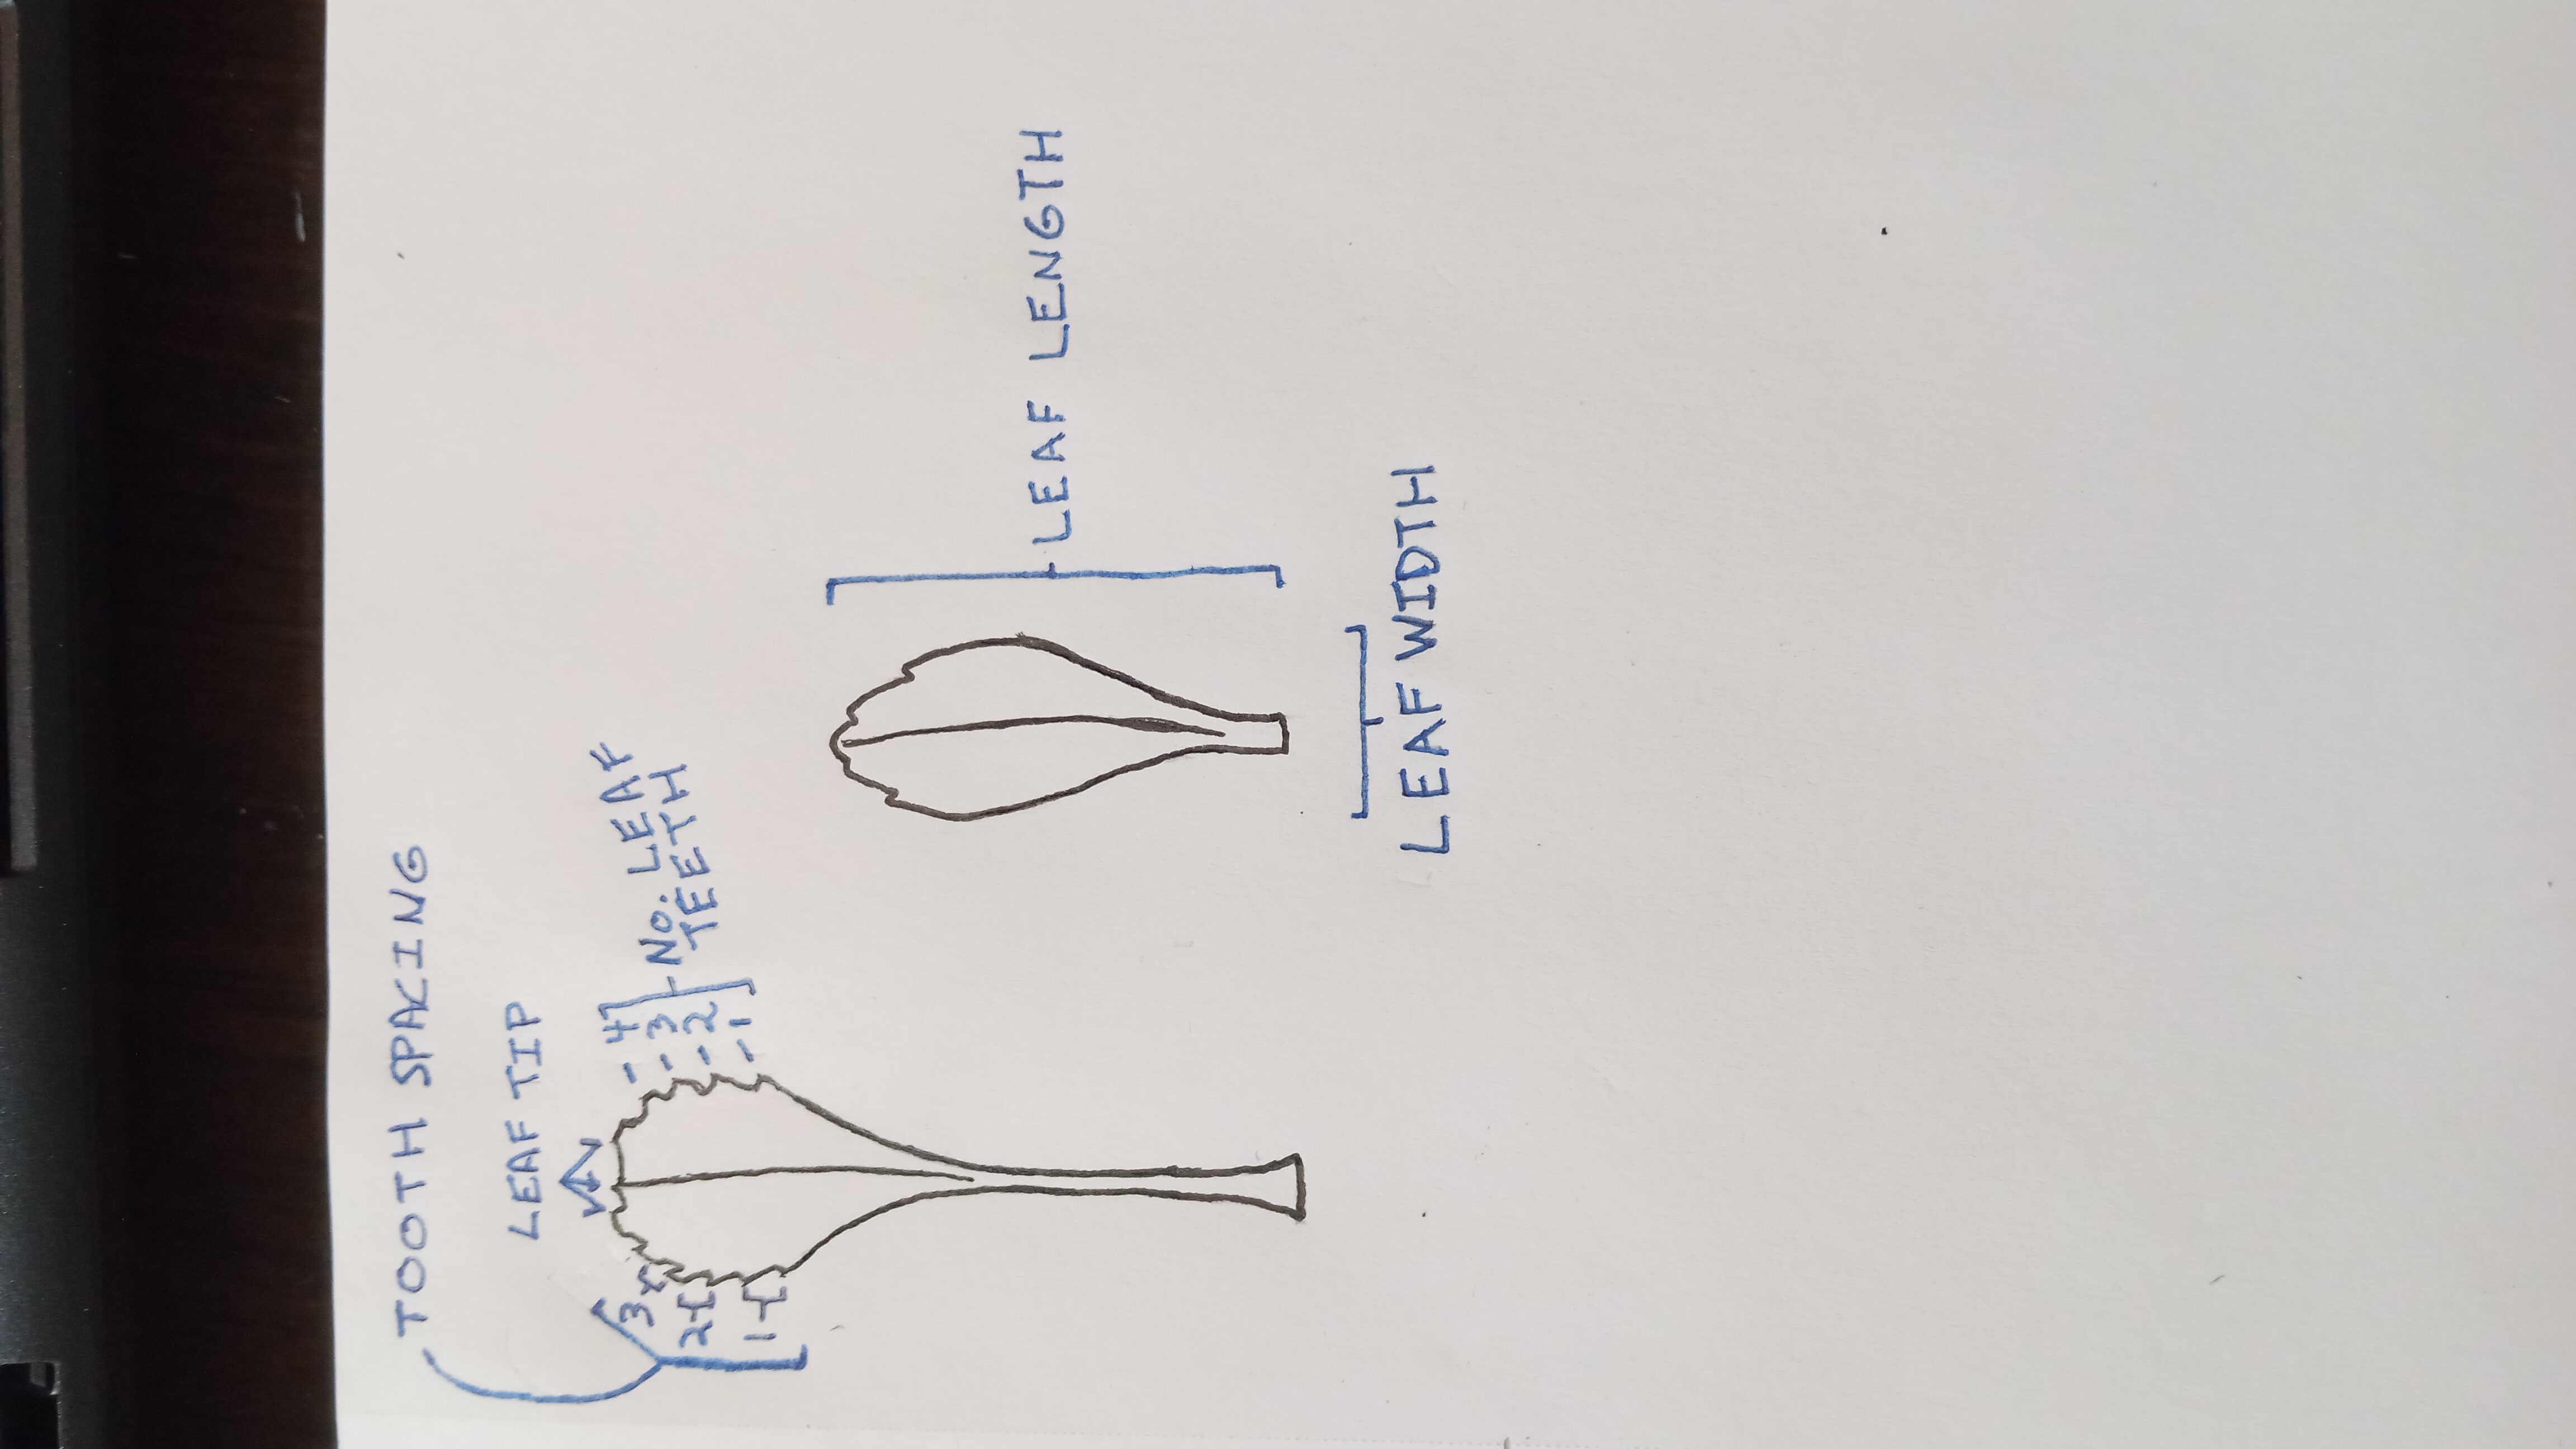 TOOTH SPACING
LEAF TIP
3
2
1
4
3
2
1
No. LEAF
TEETH
LEAF LENGTH
LEAF WIDTH